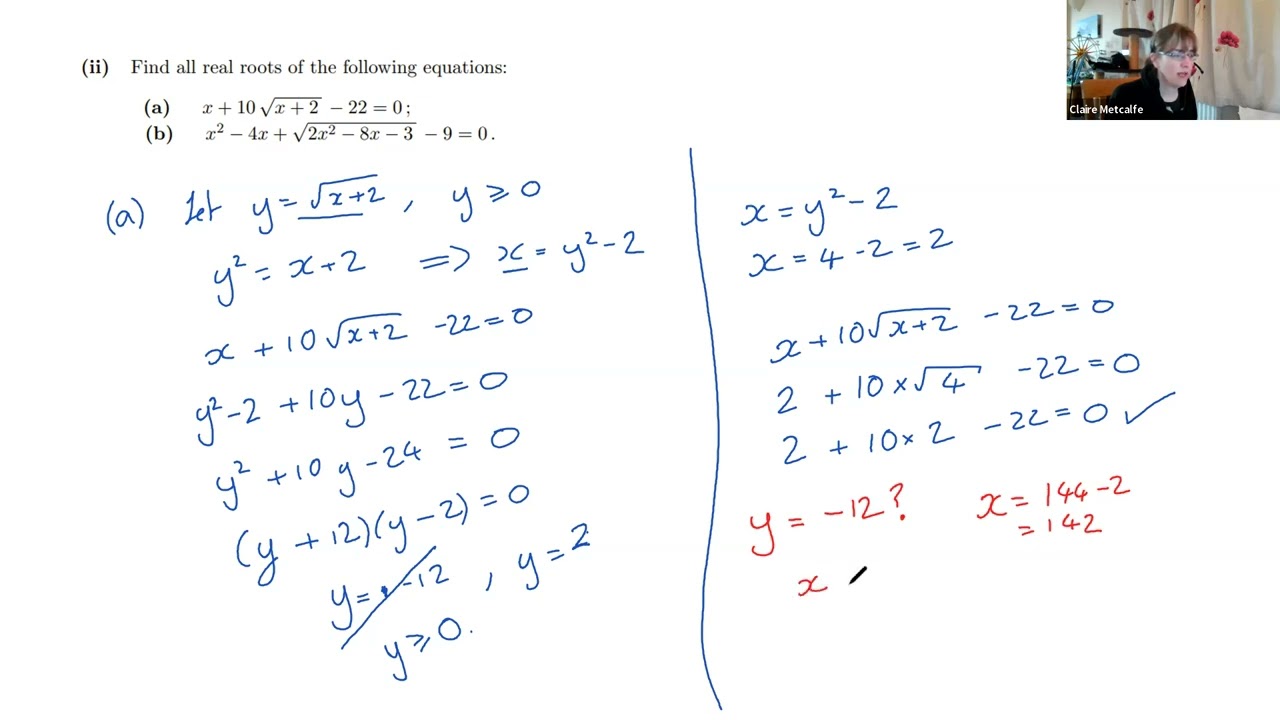 (ii) Find all real roots of the following equations:
(a) x + 10√(x + 2) − 22 = 0 ;
(b) x² − 4x + √(2x² − 8x − 3) − 9 = 0 .
Claire Metcalfe
(a) Let y = √(x+2) , y ⩾ 0
y² = x+2 ⟹ x = y² − 2
x + 10√(x+2) −22 = 0
y² −2 + 10y − 22 = 0
y² + 10y − 24 = 0
(y + 12)(y − 2) = 0
y = −12 , y = 2
y ⩾ 0.
x = y² − 2
x = 4 − 2 = 2
x + 10√(x+2) − 22 = 0
2 + 10 × √4 − 22 = 0
2 + 10 × 2 − 22 = 0 ✓
y = −12 ? x = 144 − 2
= 142
x